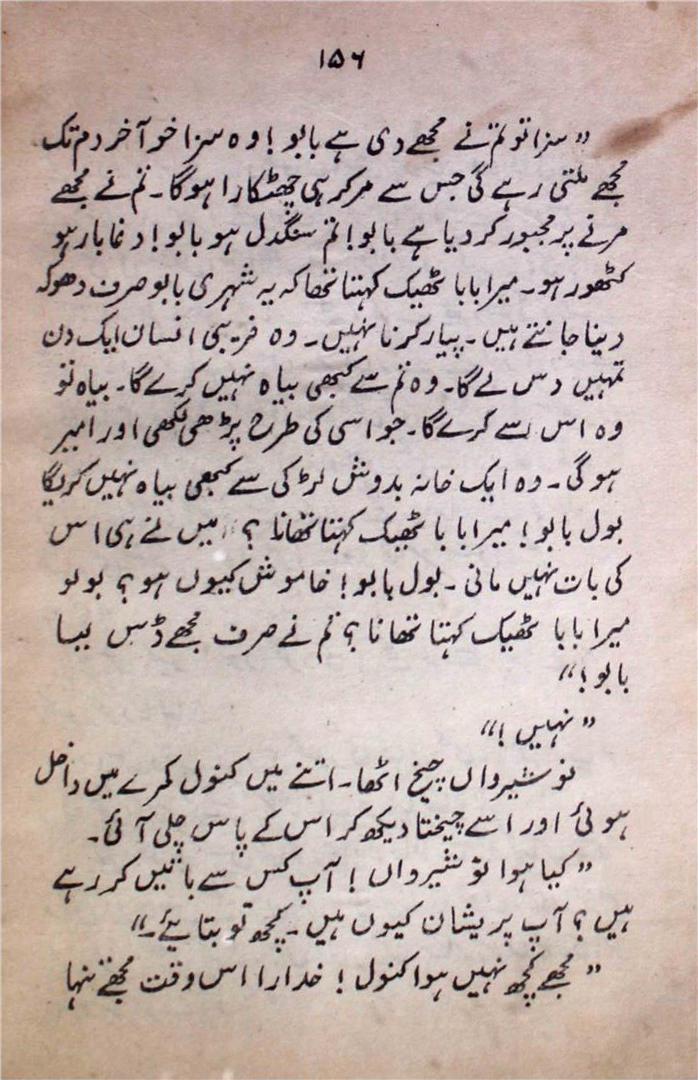 ۱۵۶
"سزا تو تم نے مجھے دی ہے بابو! وہ سزا خو آخر دم تک
مجھے ملتی رہے گی جس سے مر کر ہی چھٹکارا ہو گا۔ تم نے مجھے
مرنے پر مجبور کر دیا ہے بابو! تم سنگدل ہو بابو! دغا باز ہو
کٹھور ہو۔ میرا بابا ٹھیک کہتا تھا کہ یہ شہری بابو صرف دھوکہ
دینا جانتے ہیں۔ پیار کرنا نہیں۔ وہ فریبی انسان ایک دن
تمہیں ڈس لے گا۔ وہ تم سے کبھی بیاہ نہیں کرے گا۔ بیاہ تو
وہ اس سے کرے گا۔ جو اسی کی طرح پڑھی لکھی اور امیر
ہو گی۔ وہ ایک خانہ بدوش لڑکی سے کبھی بیاہ نہیں کریگا
بول بابو! میرا بابا ٹھیک کہتا تھا نا؟ میں نے ہی اس
کی بات نہیں مانی۔ بول بابو! خاموش کیوں ہو؟ بولو
میرا بابا ٹھیک کہتا تھا نا؟ تم نے صرف مجھے ڈس لیا
بابو!"
"نہیں!"
نوشیرواں چیخ اٹھا۔ اتنے میں کنول کمرے میں داخل
ہوئی اور اسے چیختا دیکھ کر اس کے پاس چلی آئی۔
"کیا ہوا نوشیرواں! آپ کس سے باتیں کر رہے
ہیں؟ آپ پریشان کیوں ہیں۔ کچھ تو بتایئے۔"
"مجھے کچھ نہیں ہوا کنول! خدارا اس وقت مجھے تنہا